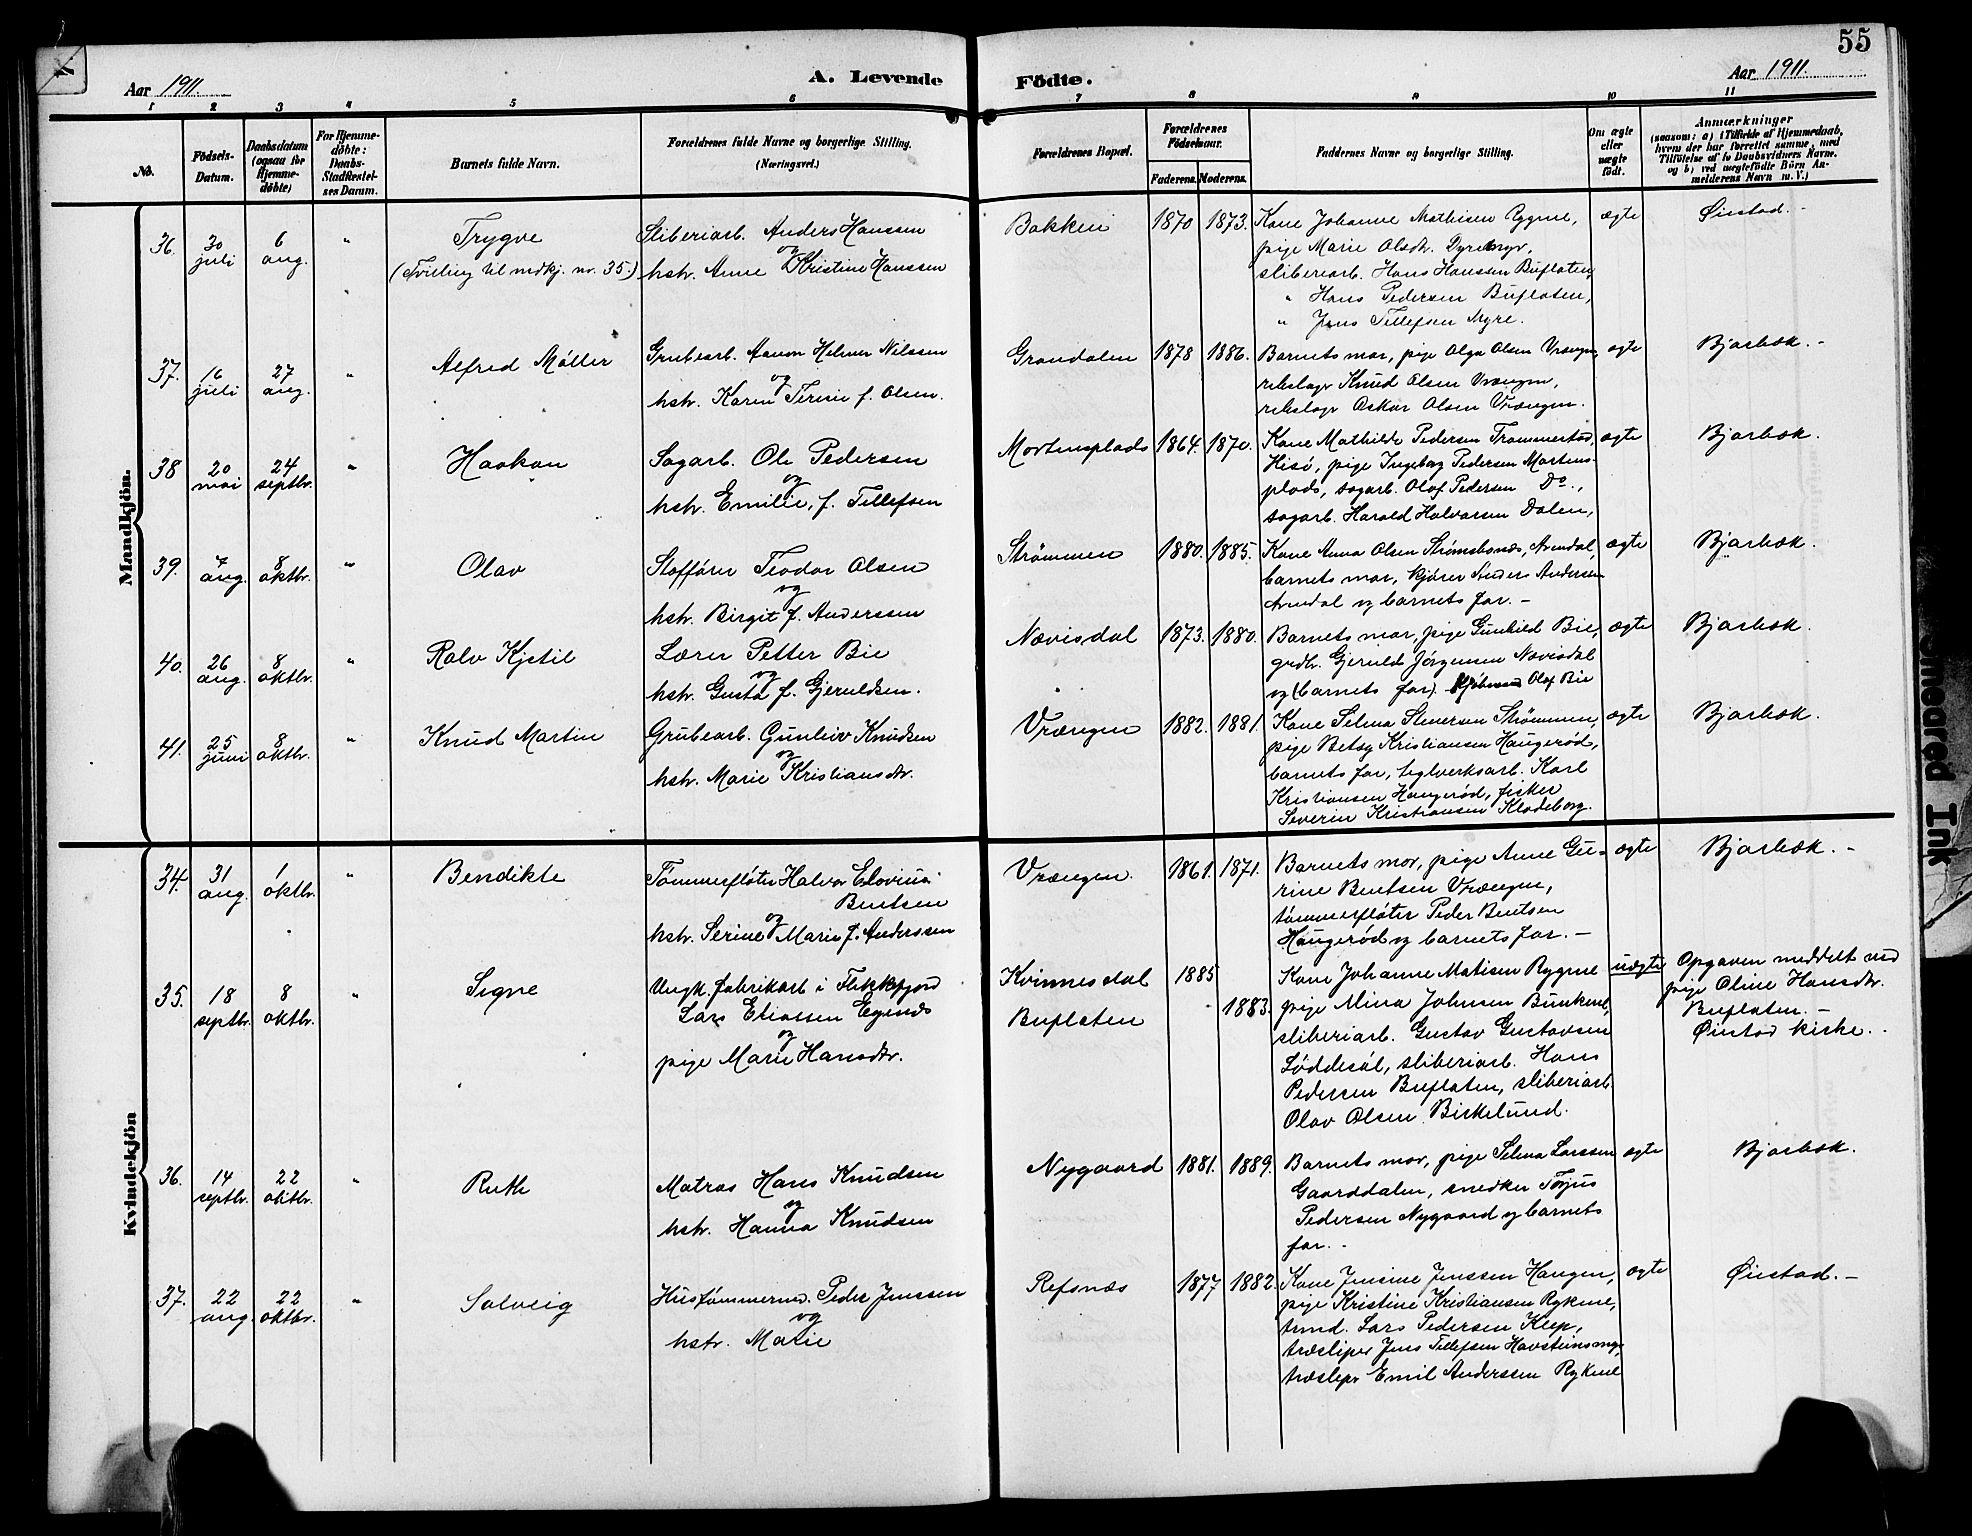 55
Aar 1911.
A. Levende Födte.
Aar 1911.
1 2 3 4 5 6 7 8 9 10 11
No.
Födsels-Datum.
Daabsdatum (ogsaa for Hjemmedöbte)
For Hjemmedöbte: Daabs-Stadfæstelses Datum.
Barnets fulde Navn.
Forældrenes fulde Navne og borgerlige Stilling. (Næringsvei.)
Forældrenes Bopæl.
Forældrenes Födselsaar.
Faderens. Moderens.
Faddernes Navne og borgerlige Stilling.
Om ægte eller uægte födt.
Anmærkninger
(saasom: a) i Tilfælde af Hjemmedaab, hvem der har forrettet samme, med Tilföielse af to Daabsvidners Navne, og b) ved uægtefödte Börn Anmelderens Navn m. V.)
Mandkjön.
36. 30 juli 6 aug. " Trygve
(Tvilling til mdkj. nr. 35.)
Sliberiarb. Anders Hanssen
og
hstr. Anne Kristine Hanssen
Bakken 1870 1873.
Kone Johanne Mathisen Rygene,
pige Marie Olsdtr. Dyremyr,
sliberiarb. Hans Hanssen Buflaten,
" Hans Pedersen Buflaten,
" Jens Tellefsen Myre.
ægte Øiestad.-
37. 16 juli 27 aug. " Alfred Møller
Grubearb. Aanon Helmer Nilssen
og
hstr. Karen Terine f. Olsen.
Grondalen 1878 1886.
Barnets mor, pige Olga Olsen Vrængen,
rebslagr Knud Olsen Vrængen,
rebslagr Oskar Olsen Vrængen.
ægte Bjorbæk.-
38 20 mai 24 septbr. " Haakon
Sagarb. Ole Pedersen
og
hstr. Emilie, f. Tellefsen
Mortensplads 1864. 1870.
Kone Mathilde Pedersen Trommestad,
Hisø, pige Ingeborg Pedersen Mortens-
plads, sagarb. Olaf Pedersen Do.,
sagarb. Harald Halvorsen Dalen,
ægte Bjorbæk.
39. 7 aug. 8 oktbr. " Olav
Stoffører Teodor Olsen
og
hstr. Birgit f. Anderssen
Strømmen 1880. 1885.
Kone Anna Olsen Strømsbonæs, Arendal,
barnets mor, kjører Anders Andersen
Arendal og barnets far.-
ægte Bjorbæk.
40. 26 aug. 8 oktbr. " Rolv Kjetil
Lærer Petter Bie
og
hstr. Gusta f. Gjeruldsen.
Nævisdal 1873. 1880.
Barnets mor, pige Gunhild Bie,
grdbr. Gjeruld Jørgensen Nævisdal
og (barnets far). Olaf Bie
ægte Bjorbæk.
41. 25 juni 8 oktbr. " Knud Martin
Grubearb. Gunleiv Knudsen
og
hstr. Marie Kristiansdtr.
Vrængen 1882. 1881.
Kone Selma Stenersen Strømmen,
pige Betsy Kristiansen Haugerød,
barnets far, teglverksarb. Karl
Kristiansen Haugerød, fisker
Severin Kristiansen Klodeborg.
ægte Bjorbæk.
Kvindekjön
34. 31 aug. 1 oktbr. " Bendikte
Tømmerfløter Halvor Elovius
Bentsen
og
hstr. Serine Marie f. Anderssen
Vrængen. 1861. 1871.
Barnets mor, pige Anne Gu-
rine Bentsen Vrængen,
tømmerfløter Peder Bentsen
Haugerød og barnets far.-
ægte Bjorbæk.-
35. 18 septbr. 8 oktbr. " Signe
Ungk. fabrikarb. i Flekkefjord
Lars Eliassen Egenes
og
pige Marie Hansdtr.
Kvinnesdal 1885
Buflaten 1883.
Kone Johanne Matisen Rygene
pige Mina Johnsen Bunkene,
sliberiarb. Gustav Gustavsen
Løddesøl, sliberiarb. Hans
Pedersen Buflaten, sliberiarb.
Olav Olsen Birkelund.
uægte
Opgaven meddelt ved
pige Oline Hansdtr.
Buflaten.-
Øiestad kirke.
36. 14 septbr. 22 oktbr. " Ruth
Matros Hans Knudsen
og
hstr. Hanna Knudsen
Nygaard 1881. 1889.
Barnets mor, pige Selma Larssen
Gaarddalen, snedker Terjus
Pedersen Nygaard og barnets
far.-
ægte Bjorbæk.
37. 22 aug. 22 oktbr. " Solveig
Hustømmermd. Peder Jenssen
og
hstr. Marie
Refsnæs 1877 1882.
Kone Jensine Jenssen Haugen,
pige Kristine Kristiansen Rykene,
tmmd. Lars Pedersen Kup,
træsliper Jens Tellefsen Havsteinsmyr,
træslipr Emil Anderssen Rykene
ægte Øiestad.-
Smeared Ink